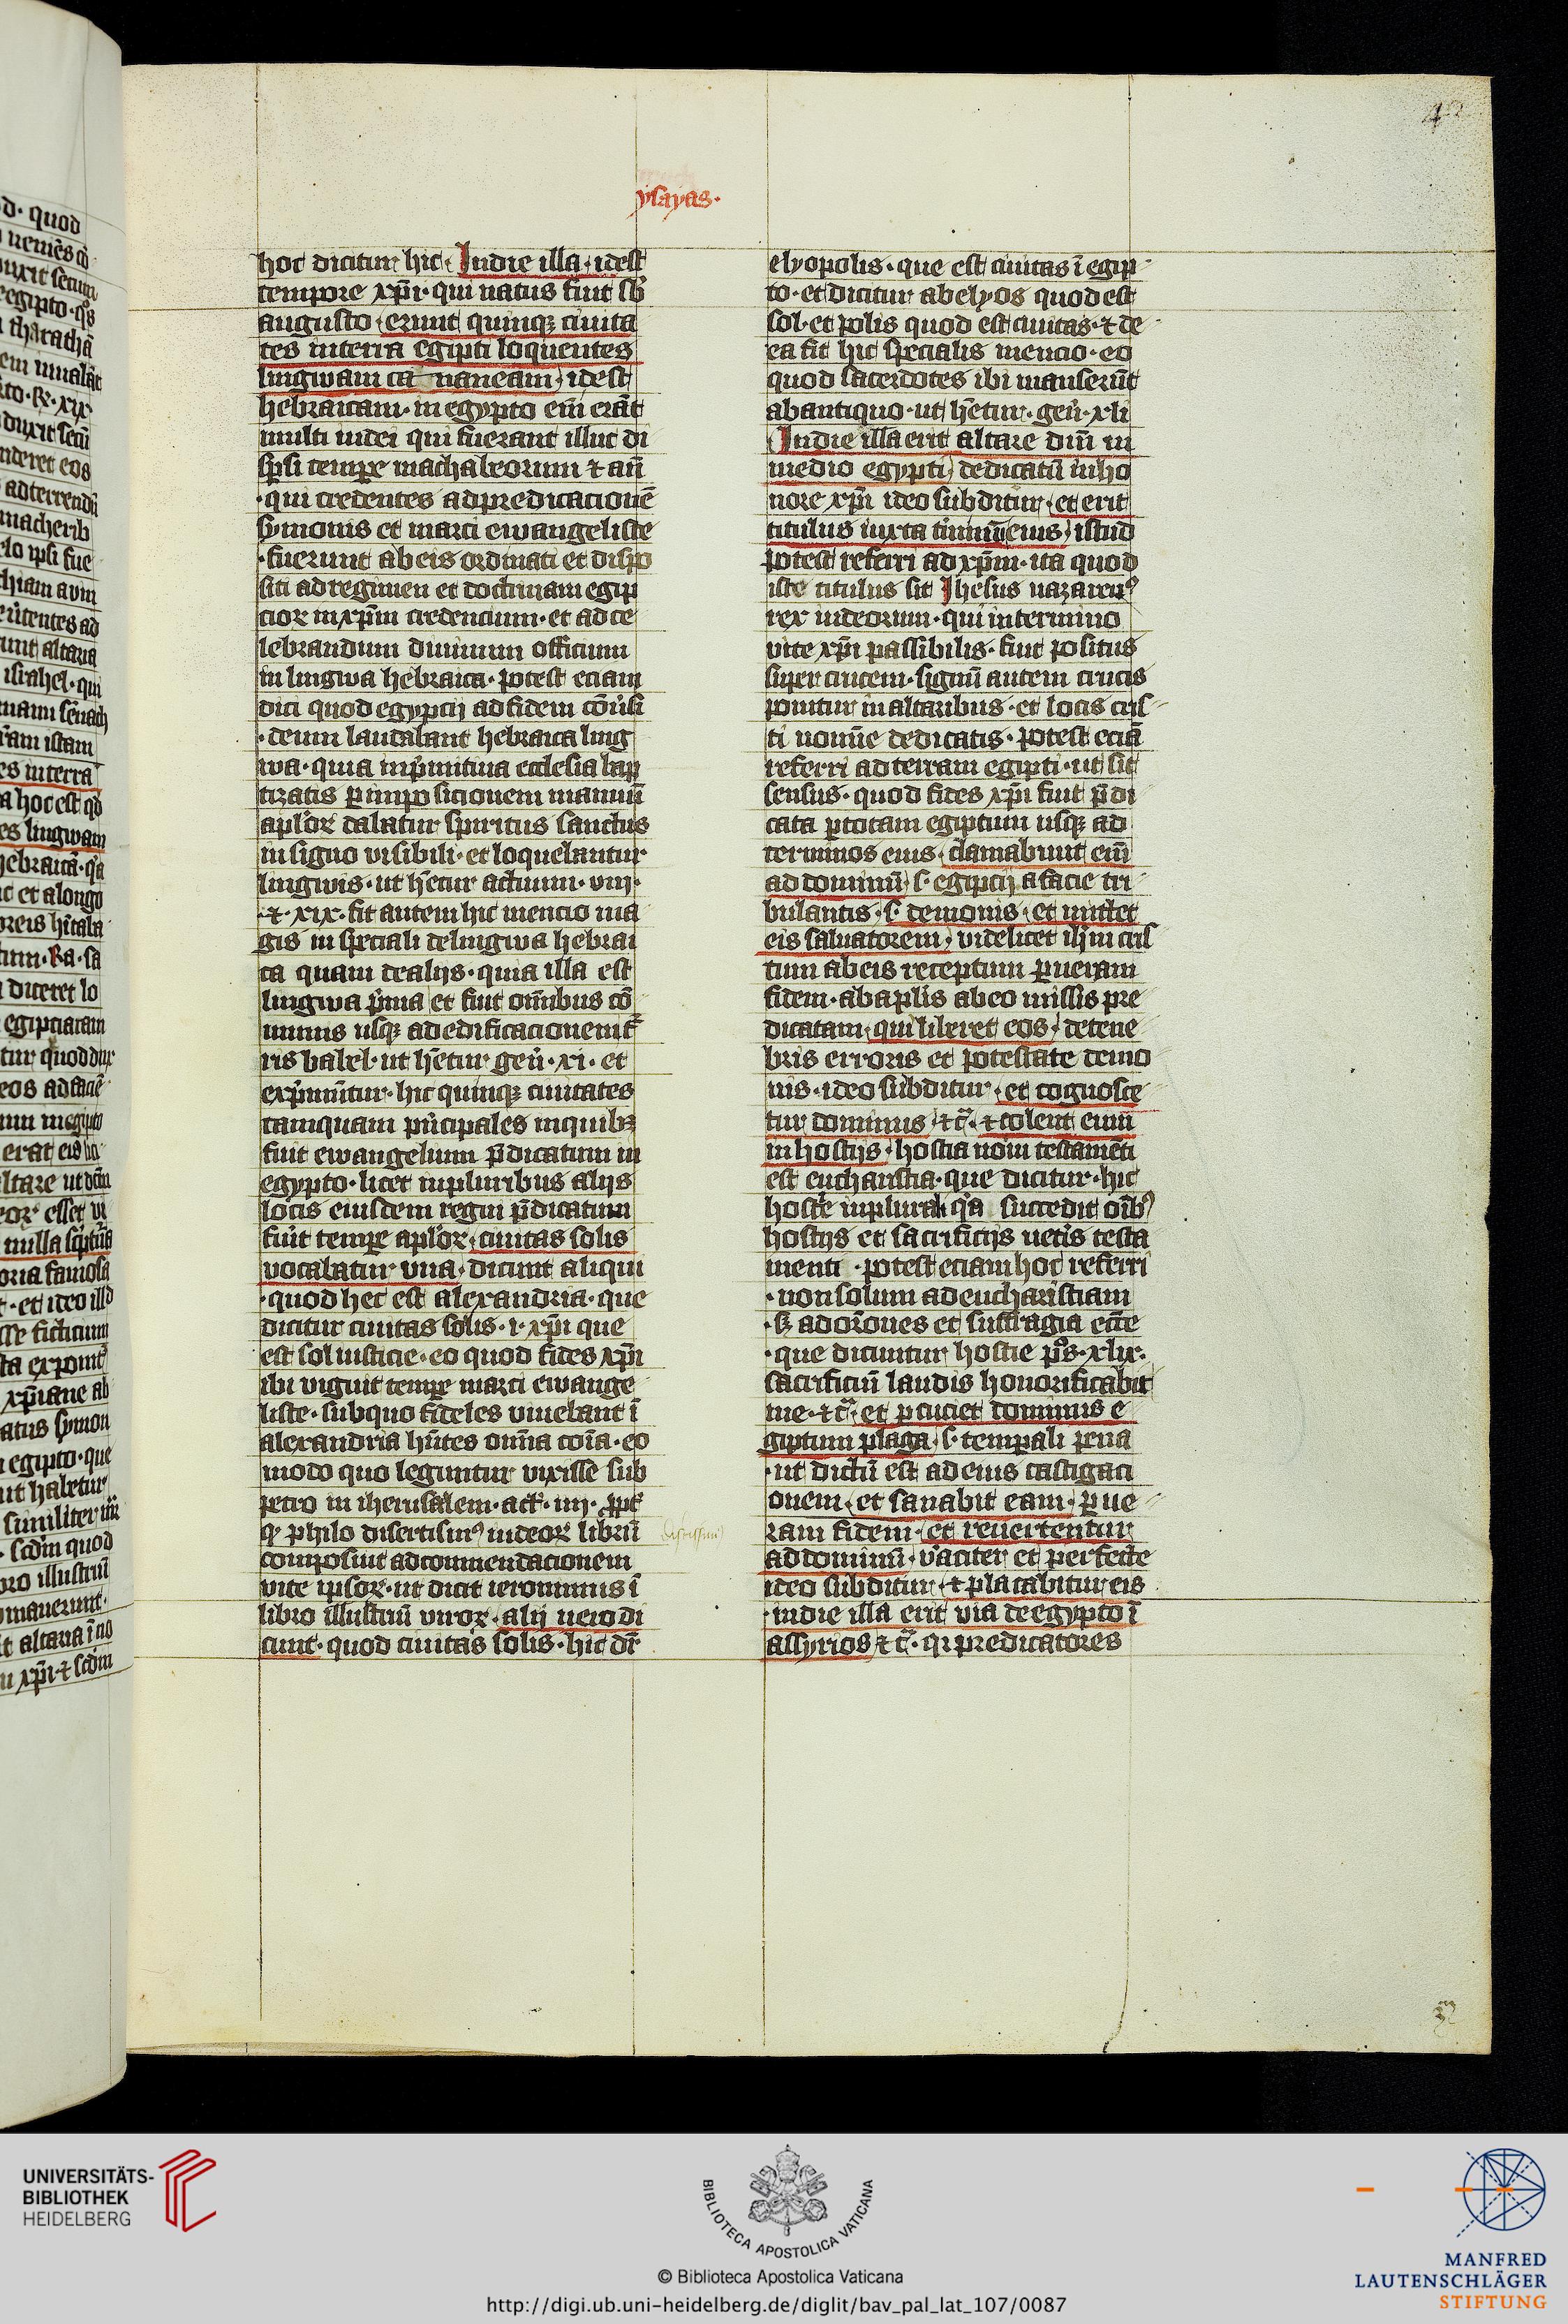 ysayas·
hoc dicitur hic· In die illa· idest
tempore xp̄i· qui natus fuit sb̄
augusto· erunt quinqꝫ ciuita
tes in terra egipti loquentes
lingwam ca naneam· idest
hebraicam· in egypto em̄ erāt
multi iudei qui fuerant illuc di
sꝑsi temꝑe machabeorum ⁊ an̄
·qui credentes ad predicacionē
symonis et marci ewangeliste
·fuerunt ab eis ordinati et dispo
siti ad regimen et doctrinam egip
cioꝝ in xp̄m credencium· et ad ce
lebrandum diuinum officium
in lingwa hebraica· potest eciam
dici quod egypcij ad fidem cōu̓si
·deum laudabant hebraica ling
wa· quia in p̓mitiua ecclesia bap
tizatis ꝑ imposicionem manuū
apl̓oꝝ dabatur spiritus sanctus
in signo visibili· et loquebantur
lingwis· ut hr̄etur actuum· viij·
·⁊· xix· fit autem hic mencio ma
gis in speciali de lingwa hebrai
ca quam de alijs· quia illa est
lingwa p̓ma et fuit om̄ibus cō
munis usqꝫ ad edificacionem t̓
ris babel· ut hr̄etur gen̄· xi· et
exp̓muntur· hic quinqꝫ ciuitates
tamquam pn̓cipales in quibꝫ
fuit ewangelium p̄dicatum in
egypto· licet in pluribus alijs
locis eiusdem regni p̄dicatum
fuit temꝑe apl̓oꝝ· ciuitas solis
vocabatur vna· dicunt aliqui
·quod hec est alexandria· que
dicitur ciuitas solis· i· xp̄i que
est sol iusticie· eo quod fides xp̄i
ibi viguit temꝑe marci ewange
liste· sub quo fideles viuebant ī
alexandria hn̄tes omīa coīa· eo
modo quo leguntur vixisse sub
petro in iherusalem· act̓· iiij· ꝓpt̓
qꝫ philo disertisimꝰ iudeoꝝ librū
composuit ad commendacionem
vite ipsoꝝ· ut dicit ieronimus ī
libro illustriū viroꝝ· alij uero di
cunt· quod ciuitas solis· hic dr̄·
elyopolis· que est ciuitas ī egip
to· et dicitur ab elyos quod est
sol· et polis quod est ciuitas· ⁊ de
ea fit hic specialis mencio· eo
quod sacerdotes ibi manserūt
ab antiquo· ut hr̄etur· gen̄· xli
In die illa erit altare dn̄i in
medio egypti· dedicatū in ho
nore xp̄i ideo subditur· et erit
titulus iuxta t̓minū eius· istud
potest referri ad xp̄m· ita quod
iste titulus sit Ihesus nazarenꝰ
rex iudeorum· qui in termino
vite xp̄i passibilis· fuit positus
super crucem· signū autem crucis
ponitur in altaribus· et locis cris
ti nomīe dedicatis· potest eciā
referri ad terram egipti· ut sit
sensus· quod fides xp̄i fuit p̄di
cata ꝑ totam egiptum usqꝫ ad
terminos eius· clamabunt em̄
ad dominū· s· egipcij a facie tri
bulantis· s· demonis· et mittet
eis saluatorem· videlicet ih̄m cris
tum ab eis receptum ꝑ ueram
fidem· ab apl̓is ab eo missis pre
dicatam· qui liberet eos· de tene
bris erroris et potestate demo
nis· ideo subditur· et cognosce
tur dominus ⁊c̄· ⁊ colent eum
in hostijs· hostia noui testamēti
est eucharistia· que dicitur· hic
hostie in plurali qͣa succedit oībꝰ
hostijs et sacrificijs uet̓is testa
menti· potest eciam hoc referri
·non solum ad eucharistiam
·sꝫ ad or̄ones et suffragia ecc̄e
·que dicuntur hostie ps̄· xlix·
sacrificiū laudis honorificabit
me· ⁊c̄· et ꝑcuciet dominus e
giptum plaga· s· temꝑali pena
·ut dictū est ad eius castigaci
onem· et sanabit eam· ꝑ ue
ram fidem· et reuertentur
ad dominū· v̓aciter et perfecte
ideo subditur· ⁊ placabitur eis
·in die illa erit via de egypto ī
assyrios ⁊c̄· qꝛ predicatores
UNIVERSITÄTS-
BIBLIOTHEK
HEIDELBERG
BIBLIOTECA APOSTOLICA VATICANA
© Biblioteca Apostolica Vaticana
http://digi.ub.uni-heidelberg.de/diglit/bav_pal_lat_107/0087
MANFRED
LAUTENSCHLÄGER
STIFTUNG